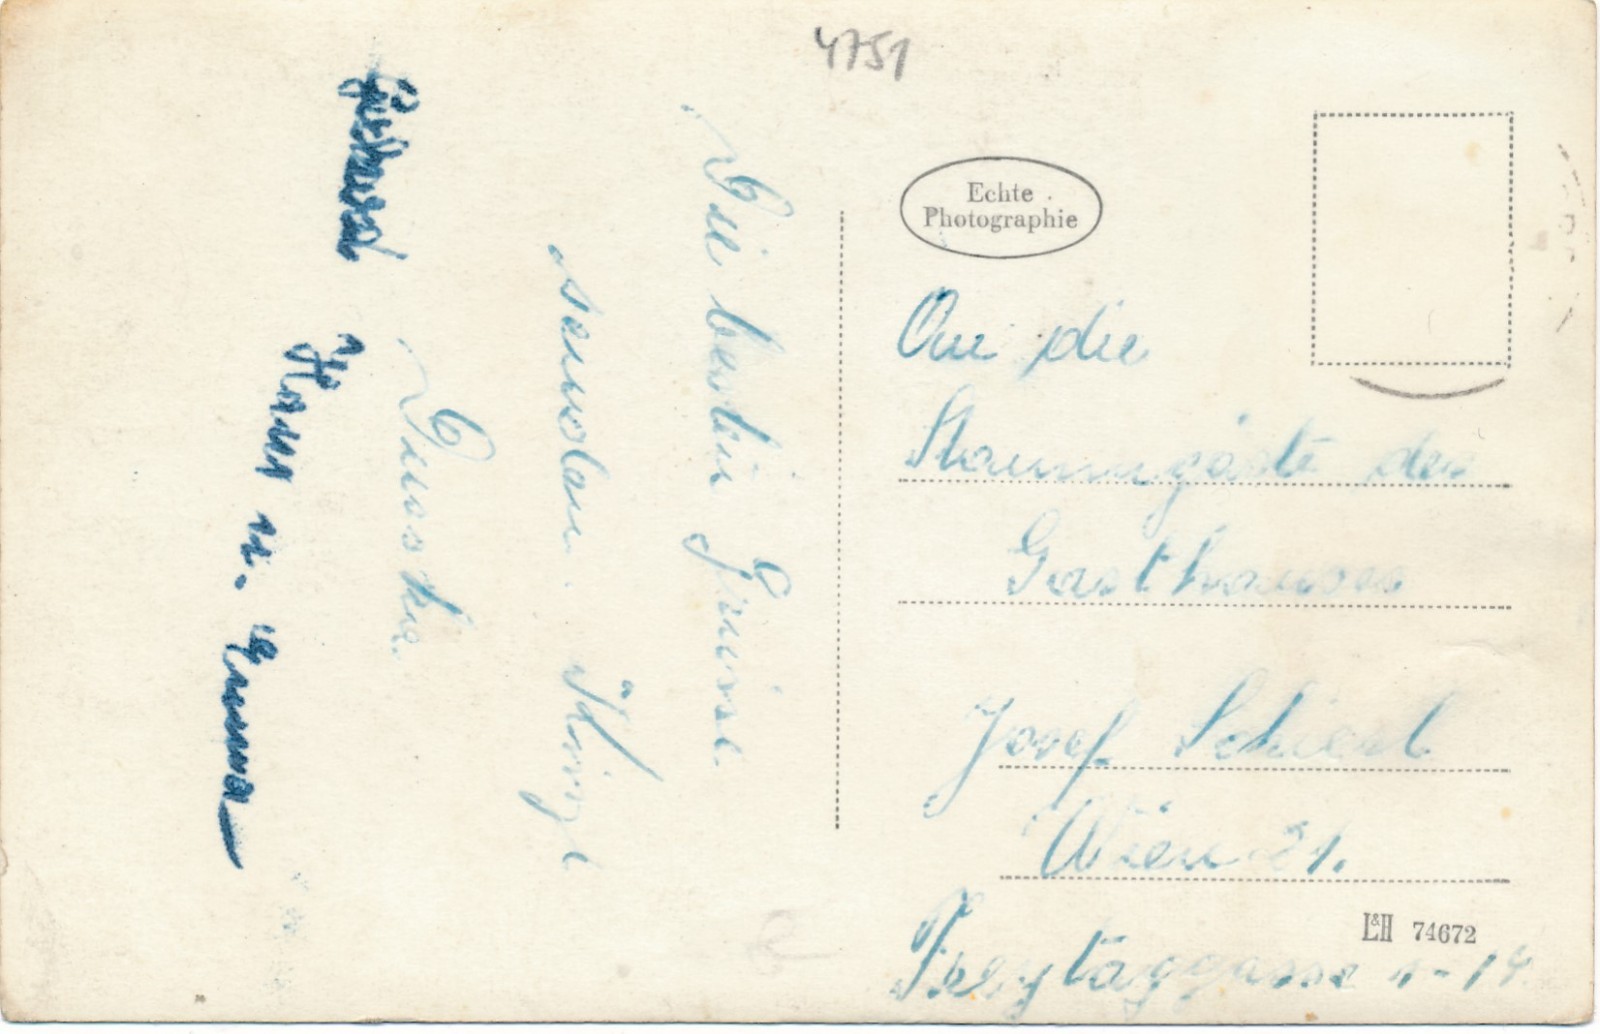 4751
Echte
Photographie
An die
Stammgäste des
Gasthauses
Josef Schierl
Wien 21.
Freytaggasse 1-14
L&H 74672
Die besten Grüsse
senden
Hans u. Emma